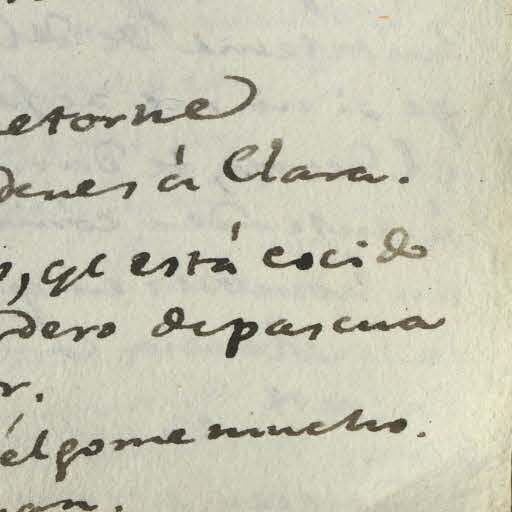 etorne
denes á Clara.
s, qe está cocido
rdero de pascua
r.
élgome mucho.
an.